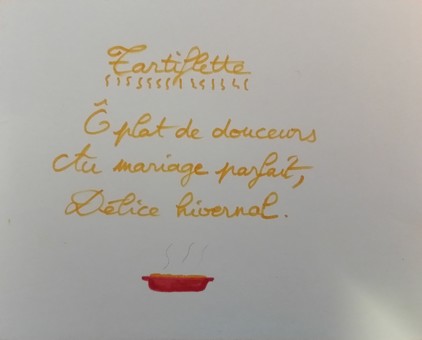 Tartiflette
Ô plat de douceurs
Au mariage parfait,
Délice hivernal.